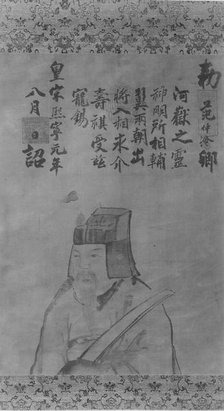 勅范仲淹卿
河嶽之靈
神明所相輔
翼兩朝出
將入相永介
壽祺受兹
寵錫
皇宋熙寧元年
八月 日詔